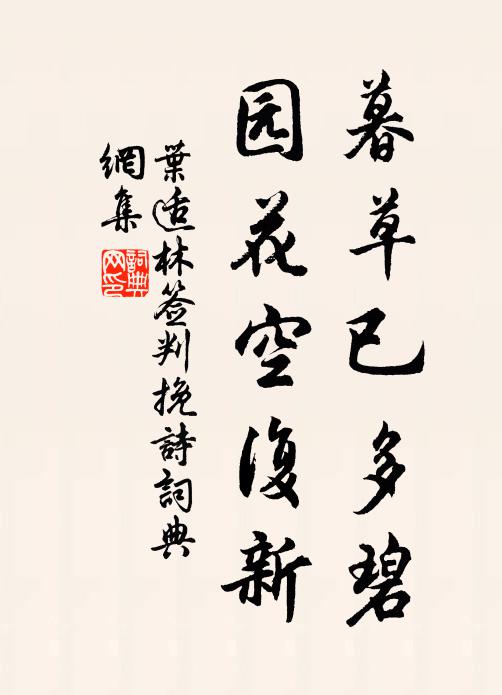 暮草已多碧
园花空復新
葉适林签判挽詩詞典
網集
詞典网印